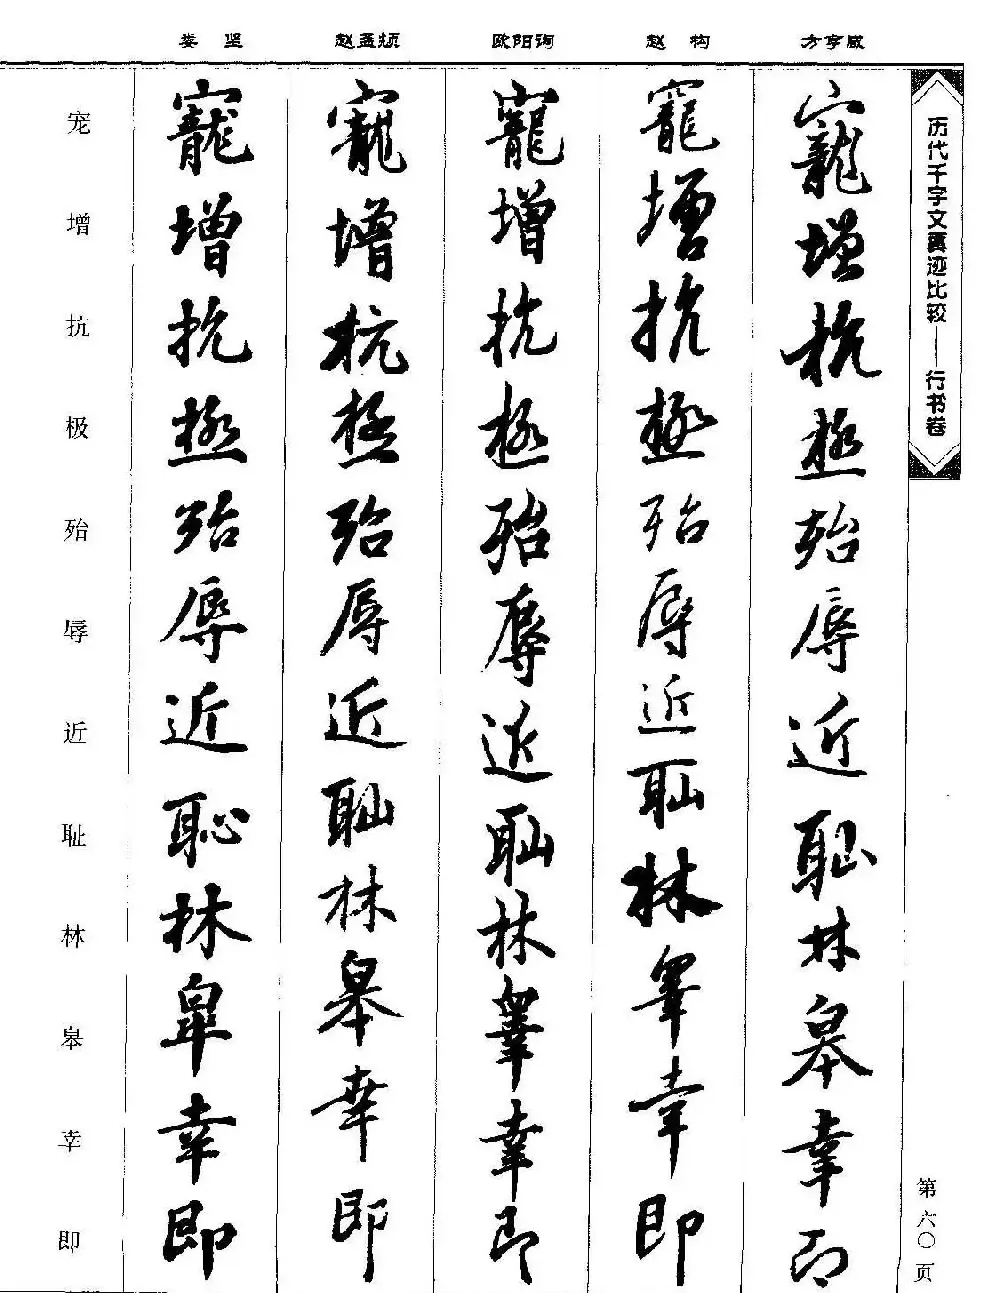 娄坚 赵孟頫 欧阳询 赵构 方亨咸
历代千字文真迹比较——行书卷
寵增抗極殆辱近恥林皋幸即
寵增抗極殆辱近耻林睾幸即
寵增抗極殆辱近耻林睾幸即
寵增抗極殆辱近耻林皋幸即
寵增抗極殆辱近恥林皐幸即
宠增抗极殆辱近耻林皋幸即
第六〇页